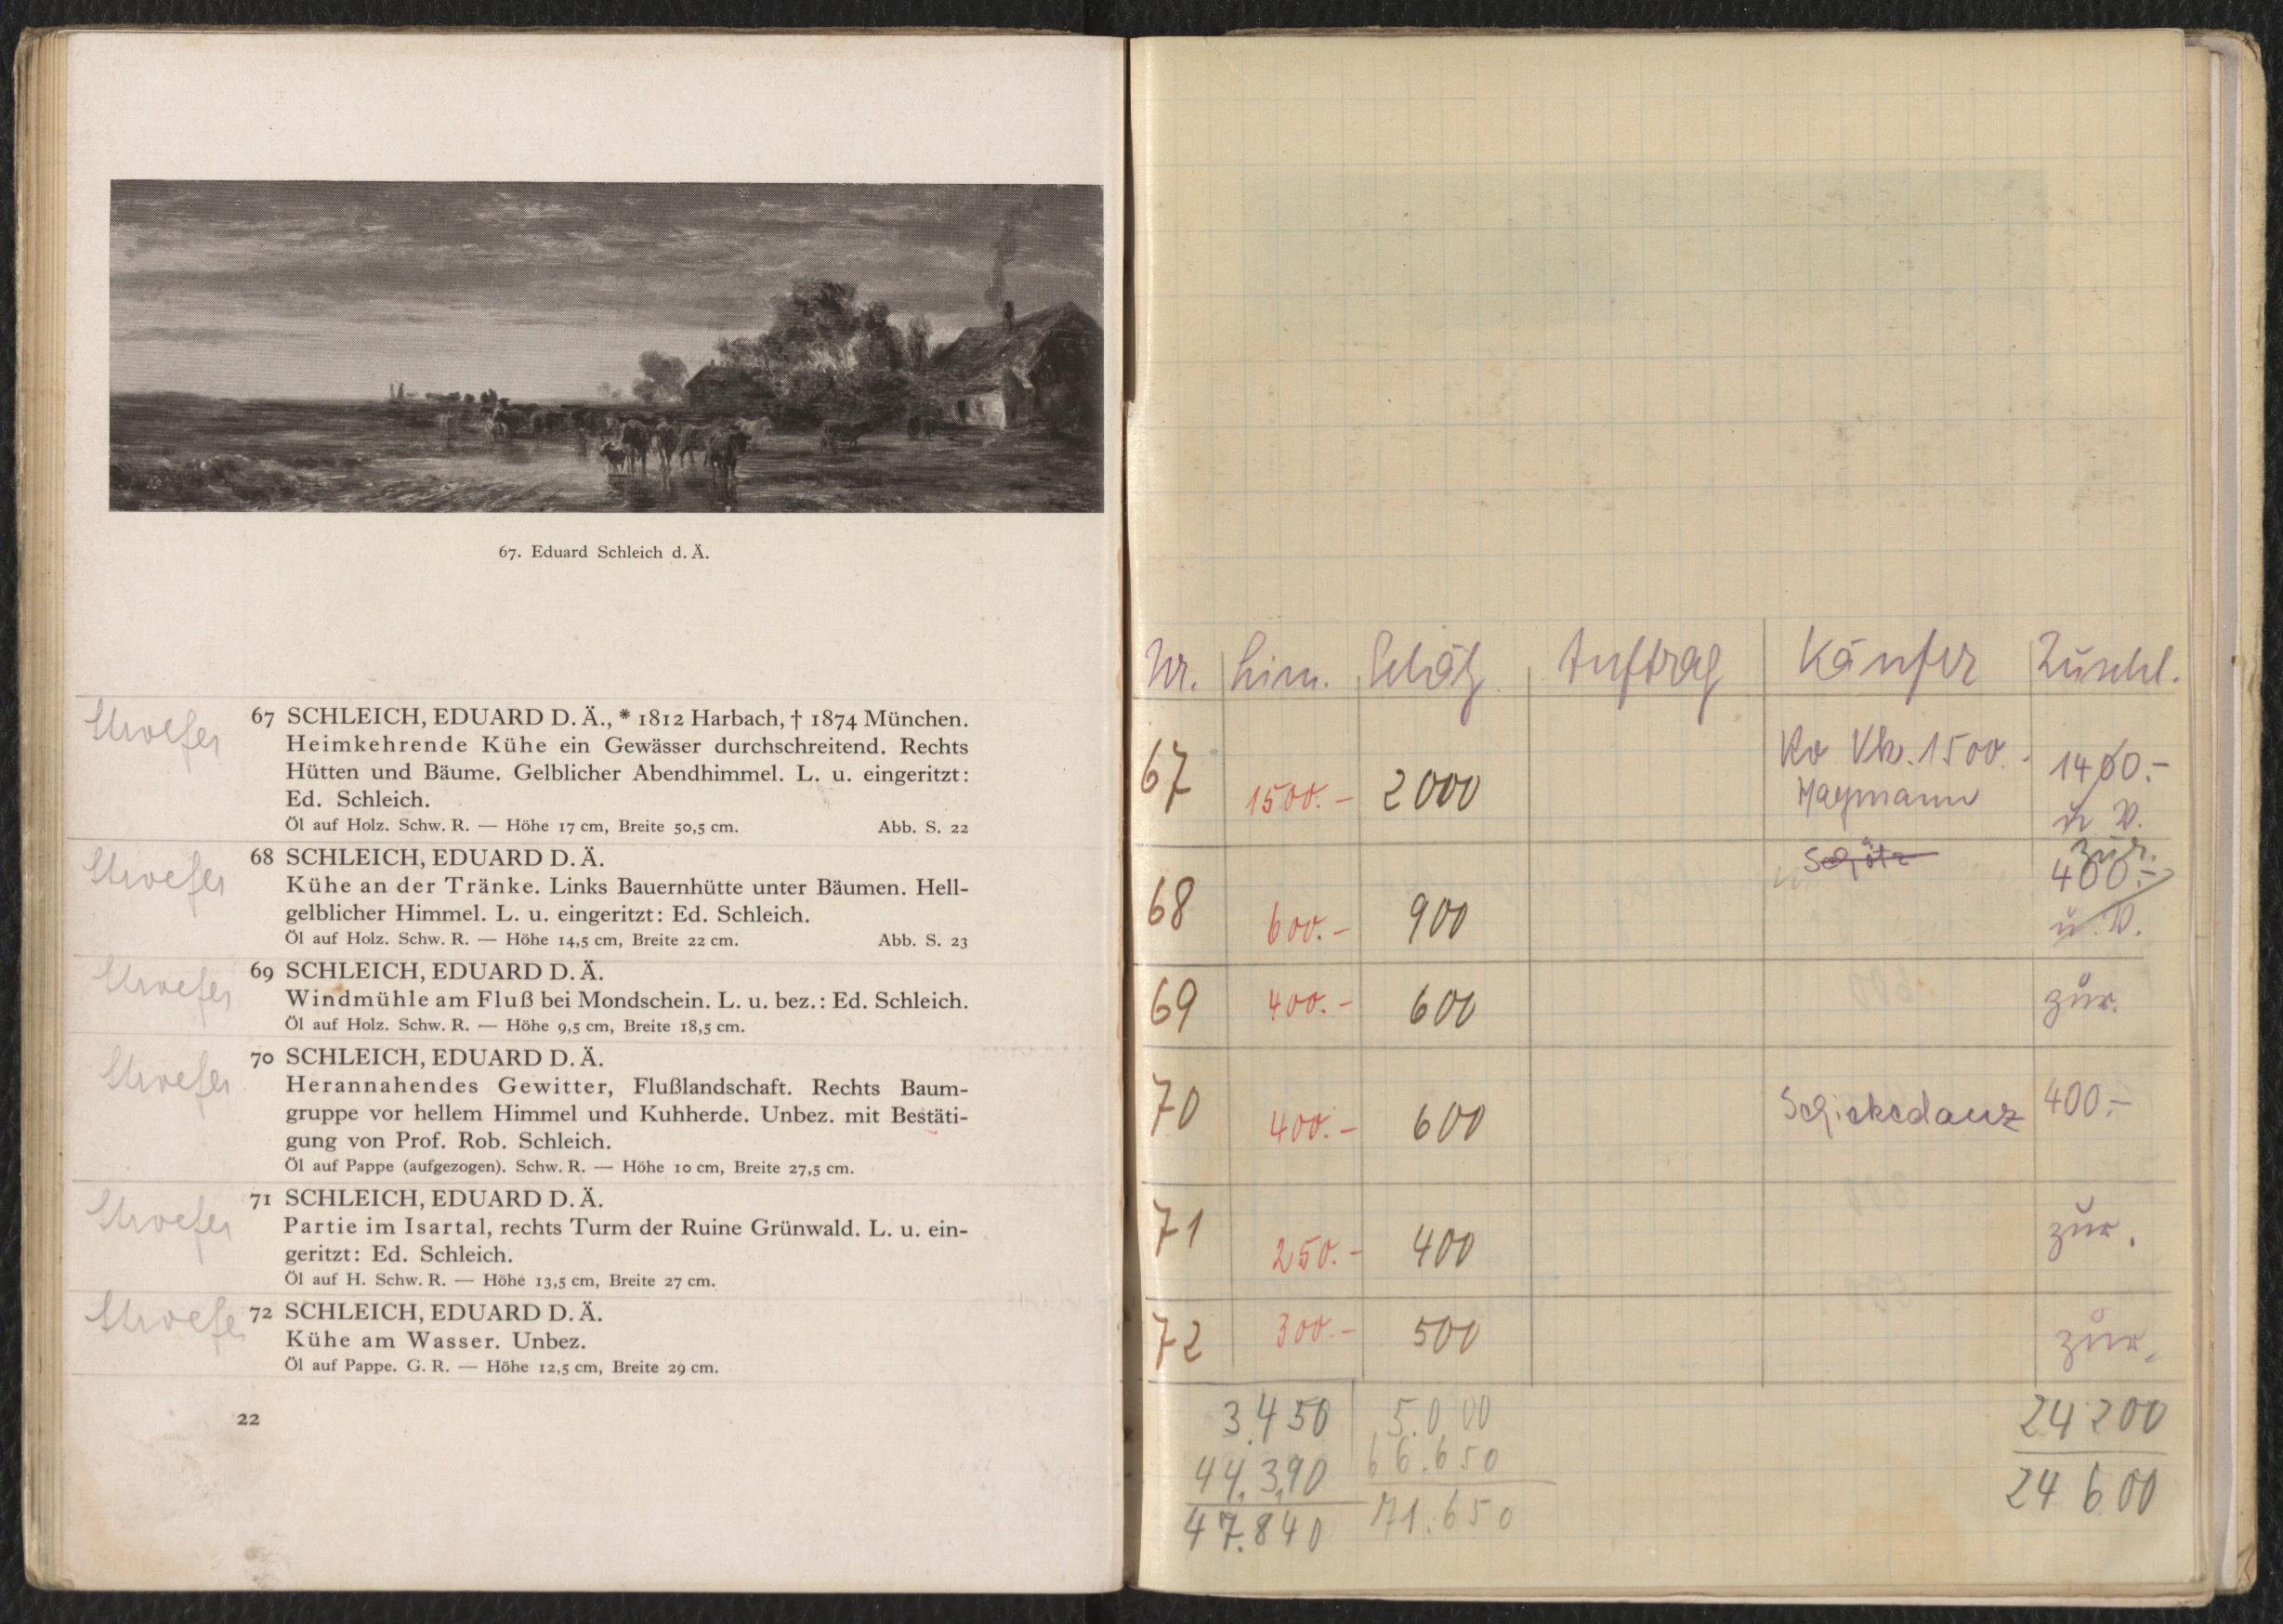 67. Eduard Schleich d. Ä.
Stroefer 67 SCHLEICH, EDUARD D. Ä., * 1812 Harbach, † 1874 München.
Heimkehrende Kühe ein Gewässer durchschreitend. Rechts
Hütten und Bäume. Gelblicher Abendhimmel. L. u. eingeritzt:
Ed. Schleich.
Öl auf Holz. Schw. R. — Höhe 17 cm, Breite 50,5 cm. Abb. S. 22
Stroefer 68 SCHLEICH, EDUARD D. Ä.
Kühe an der Tränke. Links Bauernhütte unter Bäumen. Hell-
gelblicher Himmel. L. u. eingeritzt: Ed. Schleich.
Öl auf Holz. Schw. R. — Höhe 14,5 cm, Breite 22 cm. Abb. S. 23
Stroefer 69 SCHLEICH, EDUARD D. Ä.
Windmühle am Fluß bei Mondschein. L. u. bez.: Ed. Schleich.
Öl auf Holz. Schw. R. — Höhe 9,5 cm, Breite 18,5 cm.
Stroefer 70 SCHLEICH, EDUARD D. Ä.
Herannahendes Gewitter, Flußlandschaft. Rechts Baum-
gruppe vor hellem Himmel und Kuhherde. Unbez. mit Bestäti-
gung von Prof. Rob. Schleich.
Öl auf Pappe (aufgezogen). Schw. R. — Höhe 10 cm, Breite 27,5 cm.
Stroefer 71 SCHLEICH, EDUARD D. Ä.
Partie im Isartal, rechts Turm der Ruine Grünwald. L. u. ein-
geritzt: Ed. Schleich.
Öl auf H. Schw. R. — Höhe 13,5 cm, Breite 27 cm.
Stroefer 72 SCHLEICH, EDUARD D. Ä.
Kühe am Wasser. Unbez.
Öl auf Pappe. G. R. — Höhe 12,5 cm, Breite 29 cm.
22
Nr. Lim. Schätz. Auftrag Käufer Zuschl.
67 1500.- 2000 1500.- Haymann
u V.
68 600.- 900 Schötz zur. 400.-
u. V.
69 400.- 600 zur.
70 400.- 600 Schickedanz 400.-
71 250.- 400 zur.
72 300.- 500 zur.
3.450 5.000 24 200
44.390 66.650
47.840 71.650 24 600